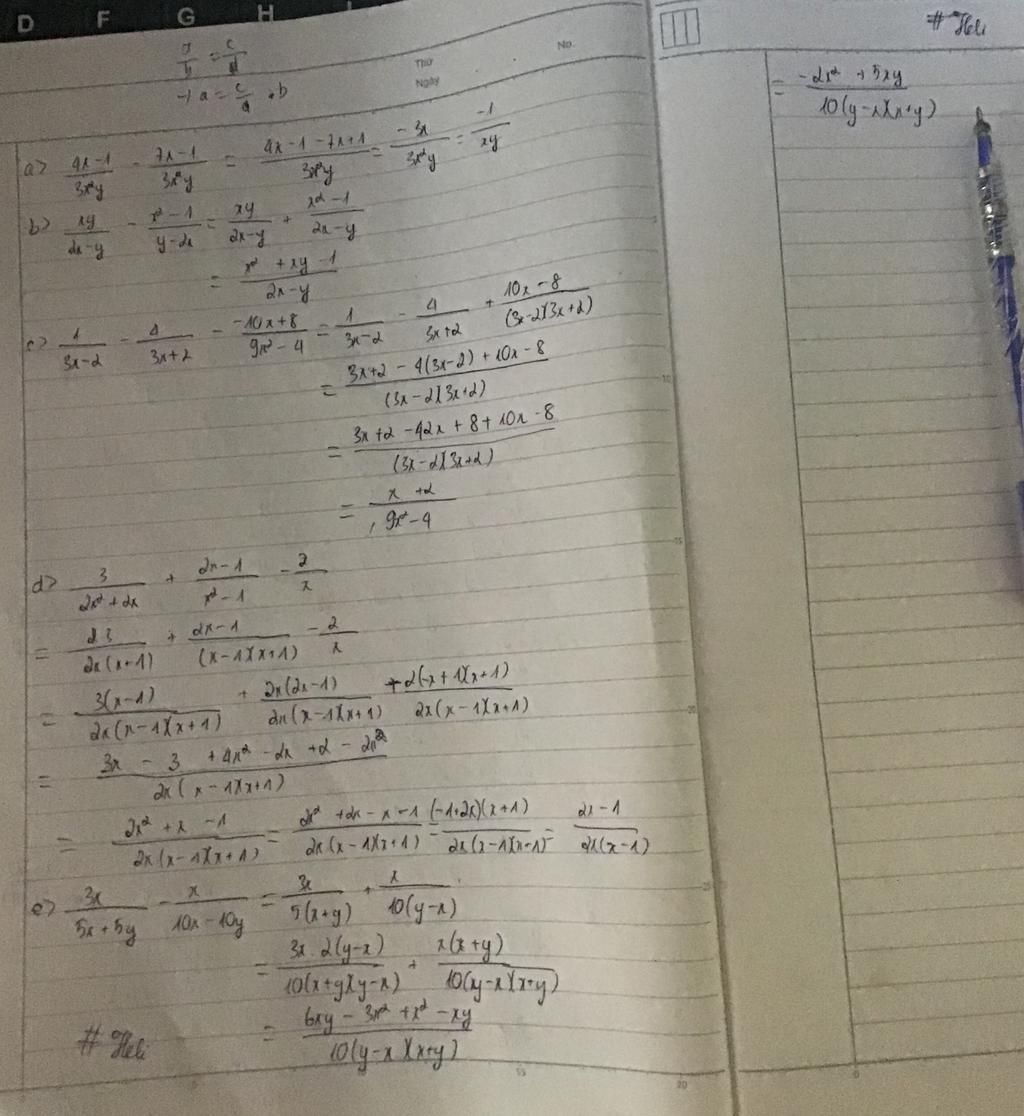 D F G H
a/b = c/d
→ a = c/d . b
Thứ
Ngày
No.
a> (4x-1)/(3x²y) - (7x-1)/(3x²y) = (4x-1-7x+1)/(3x²y) = (-3x)/(3x²y) = (-1)/(xy)
b> (xy)/(2x-y) - (x²-1)/(y-2x) = (xy)/(2x-y) + (x²-1)/(2x-y)
= (x²+xy-1)/(2x-y)
c> 1/(3x-2) - 4/(3x+2) - (-10x+8)/(9x²-4) = 1/(3x-2) - 4/(3x+2) + (10x-8)/((3x-2)(3x+2))
= (3x+2-4(3x-2)+10x-8)/((3x-2)(3x+2))
= (3x+2-12x+8+10x-8)/((3x-2)(3x+2))
= (x+2)/(9x²-4)
d> 3/(2x²+2x) + (2x-1)/(x²-1) - 2/x
= 3/(2x(x+1)) + (2x-1)/((x-1)(x+1)) - 2/x
= (3(x-1))/(2x(x-1)(x+1)) + (2x(2x-1))/(2x(x-1)(x+1)) + (2(-x+1)(x+1))/(2x(x-1)(x+1))
= (3x-3+4x²-2x+2-2x²)/(2x(x-1)(x+1))
= (2x²+x-1)/(2x(x-1)(x+1)) = (2x²+2x-x-1)/(2x(x-1)(x+1)) = ((-1+2x)(x+1))/(2x(x-1)(x+1)) = (2x-1)/(2x(x-1))
e> 3x/(5x+5y) - x/(10x-10y) = 3x/(5(x+y)) + x/(10(y-x))
= (3x.2(y-x))/(10(x+y)(y-x)) + (x(x+y))/(10(y-x)(x+y))
= (6xy-3x²+x²-xy)/(10(y-x)(x+y))
# Heli
# Heli
= (-2x²+5xy)/(10(y-x)(x+y))